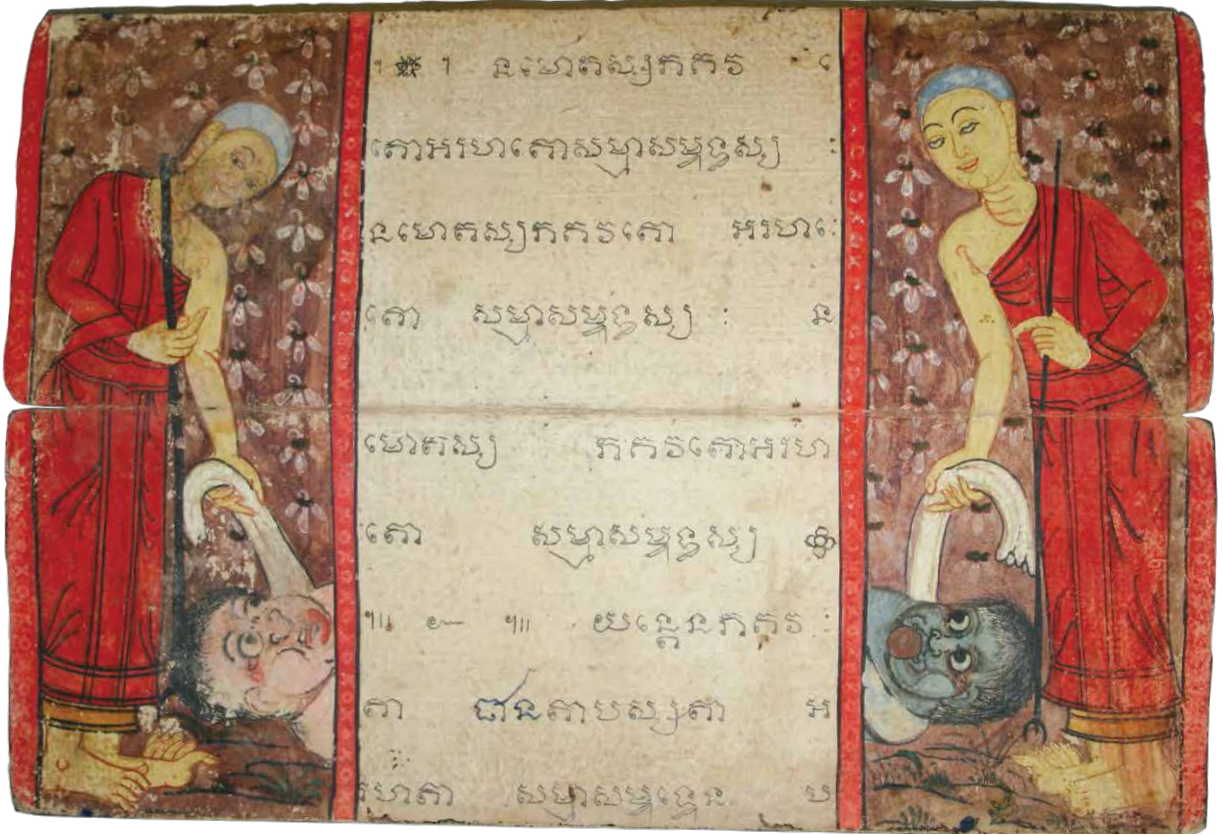 នមោតស្សភគវ
តោអរហតោសម្មាសម្ពុទ្ធស្ស :
នមោតស្សភគវតោ អរហ :
តោ សម្មាសម្ពុទ្ធស្ស : ន
មោតស្ស ភគវតោអរហ
តោ សម្មាសម្ពុទ្ធស្ស
យន្តេនភគវ :
តា ជានតាបស្សតា អ
រហតា សម្មាសម្ពុទ្ធេន ប